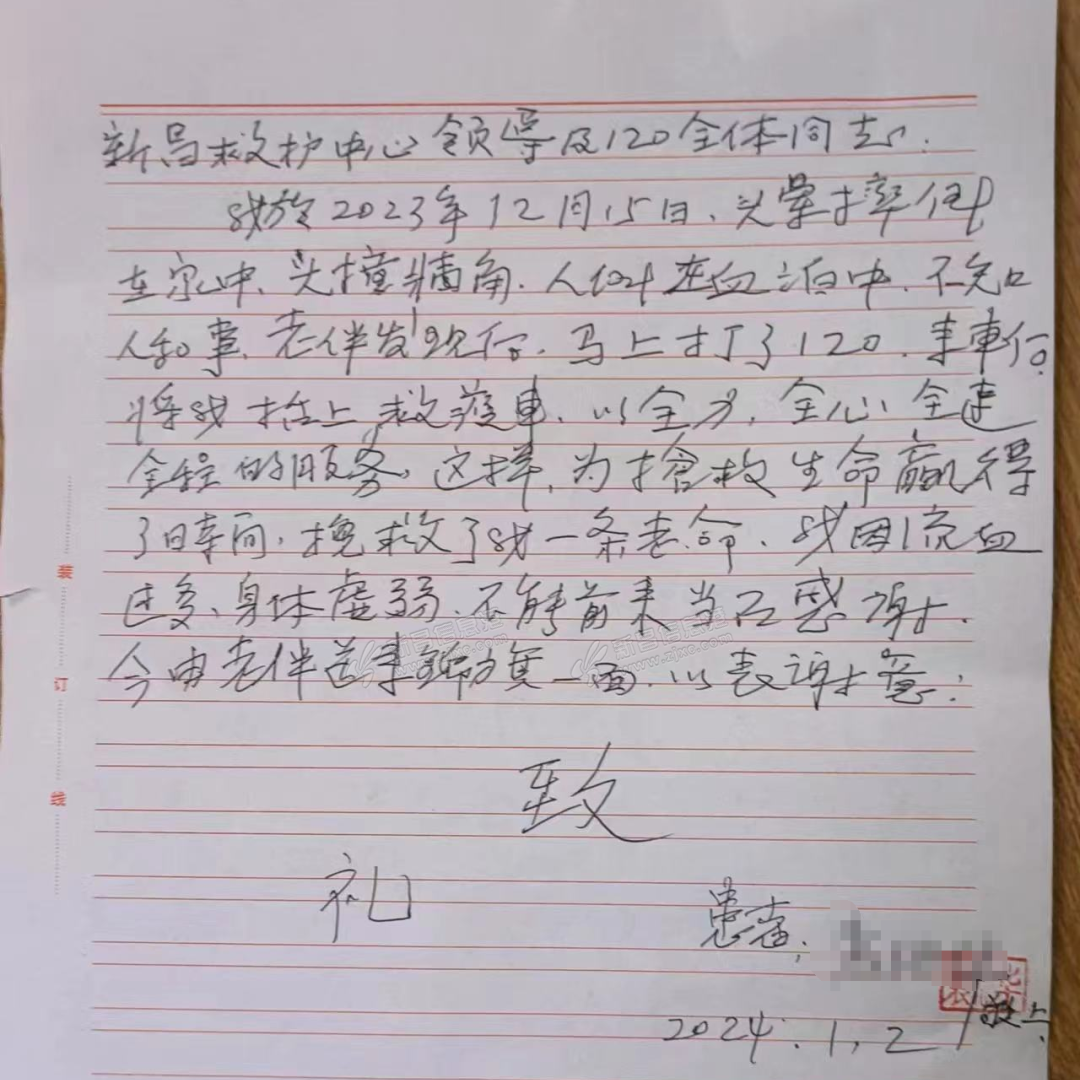 新昌救护中心领导及120全体同志:
我於2023年12月15日、头晕摔倒
在家中、头撞墙角、人倒在血泊中、不知
人和事、老伴发现后、马上打了120、来車后
将我抬上救護車、以全方、全心全速
全程的服务、这样、为搶救生命赢得
了时间、挽救了我一条老命、我因流血
过多、身体虚弱、不能前来当面感谢、
今由老伴送来錦旗一面、以表谢意:
致
礼
患者:
敬上
2024.1.2
装
订
线